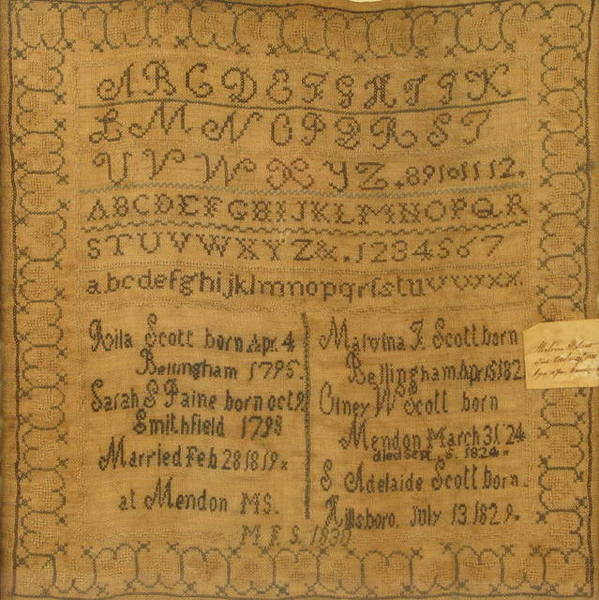 A B C D E F G H I J K
L M N O P Q R S T
U V W X Y Z . 8 9 10 11 12.
A B C D E F G H I J K L M N O P Q R
S T U V W X Y Z & . 1 2 3 4 5 6 7
a b c d e f g h i j k l m n o p q r ſ s t u v w x x.
Scott born Apr. 4
Bellingham 1795.
Sarah S Paine born oct 9
Smithfield 1798
Married Feb 28 1819
at Mendon MS.
Malvina F. Scott born
Bellingham Apr 15 182
Olney W Scott born
Mendon March 31 24
died Sept. 6. 1824
S Adelaide Scott born
Hillsboro. July 13 182 9.
M F S. 1830